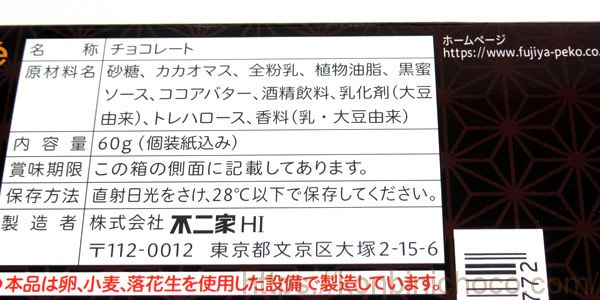 名称 チョコレート
原材料名 砂糖、カカオマス、全粉乳、植物油脂、黒蜜
ソース、ココアバター、酒精飲料、乳化剤(大豆
由来)、トレハロース、香料(乳・大豆由来)
内容量 60g(個装紙込み)
賞味期限 この箱の側面に記載してあります。
保存方法 直射日光をさけ、28℃以下で保存してください。
製造者 株式会社 不二家 HI
〒112-0012 東京都文京区大塚2-15-6
本品は卵、小麦、落花生を使用した設備で製造しています。
ホームページ
https://www.fujiya-peko.co.
772
https://konbinichoco.com/